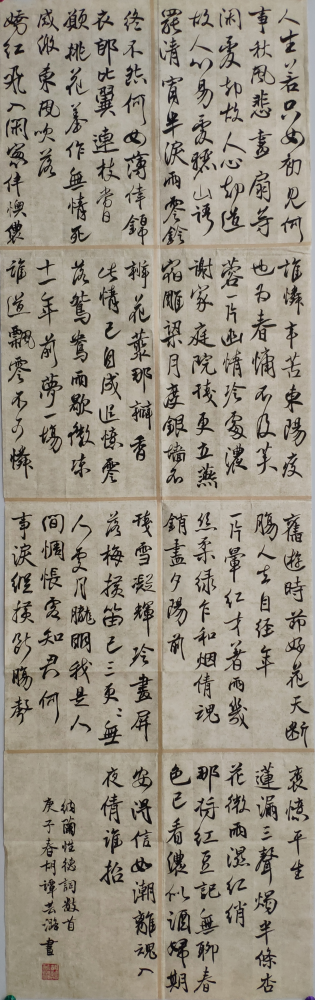 人生若只如初見何
事秋風悲畫扇等
闲变却故人心却道
故人心易变驪山語
罷清宵半淚雨零鈴
終不怨何如薄倖錦
衣郎比翼連枝當日
願桃花羞作無情死
感激東風吹落
嬌红飛入閑窗伴懊儂
誰憐辛苦東陽瘦
也为春慵不及芙
蓉一片幽情冷處濃
謝家庭院残更立燕
宿雕梁月度銀墻不
辨花叢那辨香
此情已自成追憶零
落鴛鴦雨歇微凉
十一年前夢一場
誰道飄零不可憐
舊遊時節好花天断
腸人去自经年
一片暈红才著雨幾
丝柔绿乍和烟倩魂
銷盡夕陽前
残雪凝輝冷畫屏
落梅横笛已三更〻無
人處月朧明我是人
間惆悵客知君何
事淚縱横断腸聲
裏憶平生
蓮漏三聲燭半條杏
花微雨濕红绡
那将红豆記無聊春
色已看濃似酒歸期
安得信如潮離魂入
夜倩誰招
納蘭性德詞數首
庚子春胡譚芸潞書